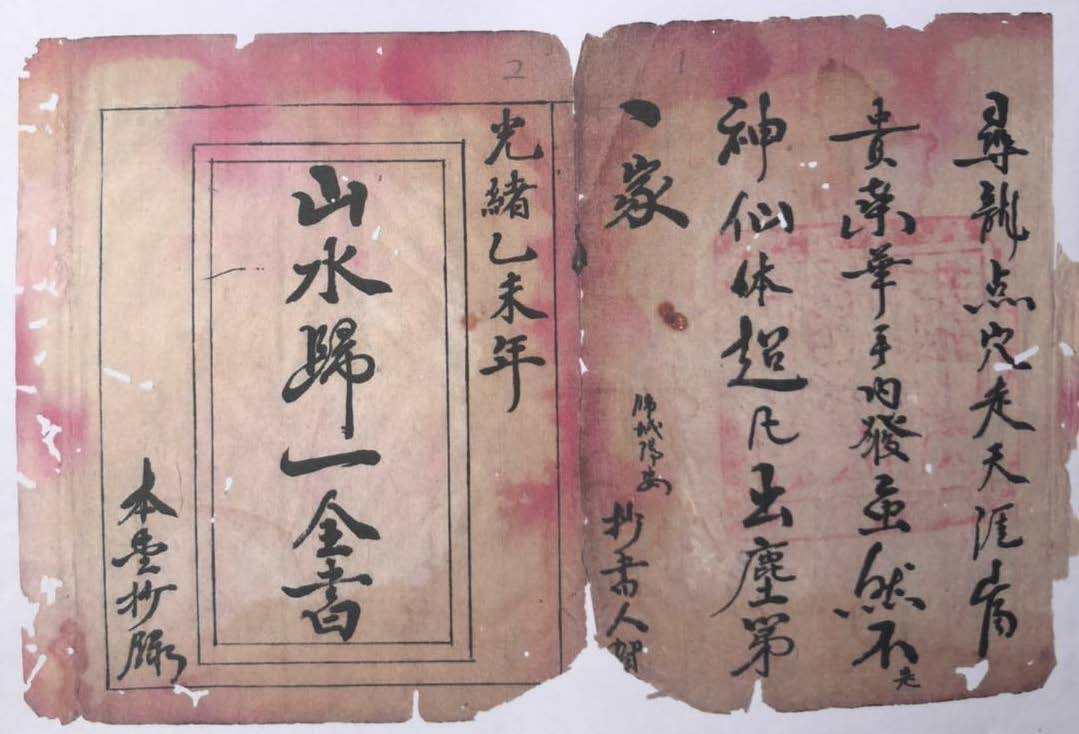 尋龍点穴走天涯富
貴荣華手内發虽然不是
神仙体超凡出塵第
一家
抄書人賀
光緒乙未年
山水歸一全書
本堂抄
2
1